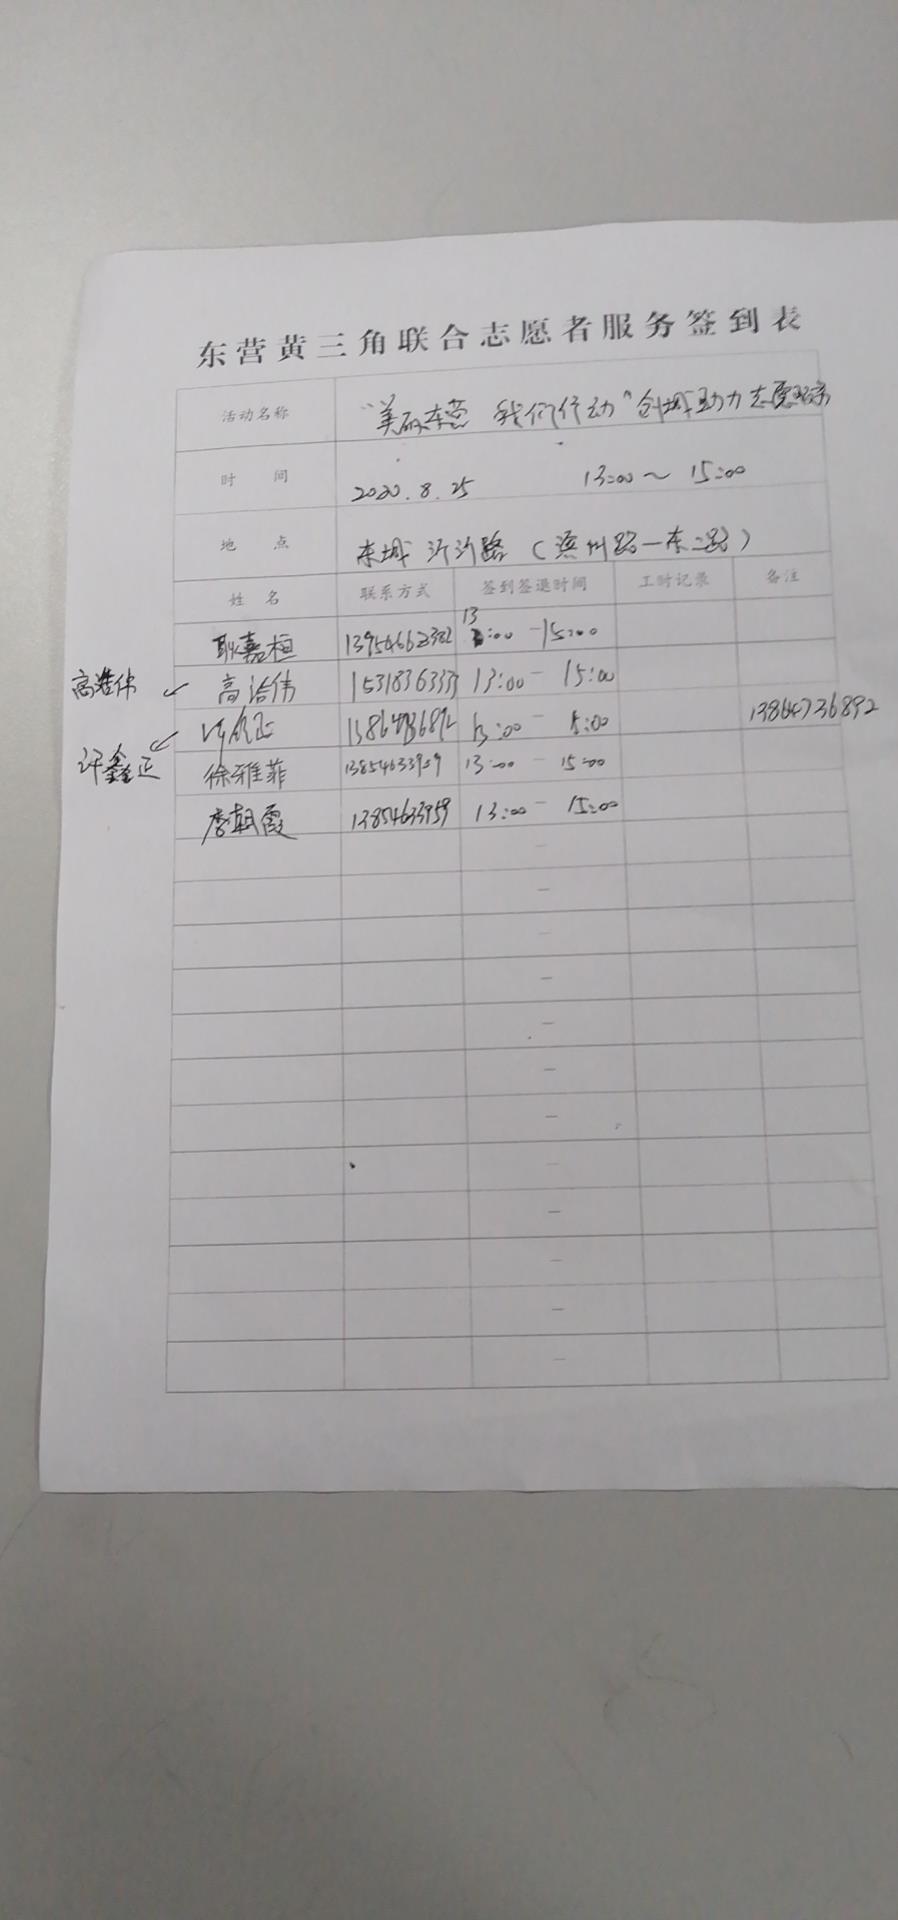 东营黄三角联合志愿者服务签到表
活动名称 "美丽东营 我们行动"创城助力志愿服务
时 间 2020.8.25 13:00～15:00
地 点 东城 沂河路（滨州路—东二路）
姓 名 联系方式 签到签退时间 工时记录 备注
耿嘉桓 13954662382 13:00 - 15:00
高浩伟 高浩伟 1531836333 13:00 - 15:00
许鑫正 13:00 - 15:00 13864736892
徐雅菲 13854633959 13:00 - 15:00
李朝霞 13854633959 13:00 - 15:00